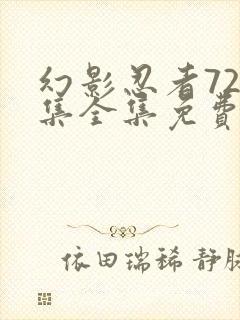 幻影忍者72
集全集免费
依田瑞稀 静脉